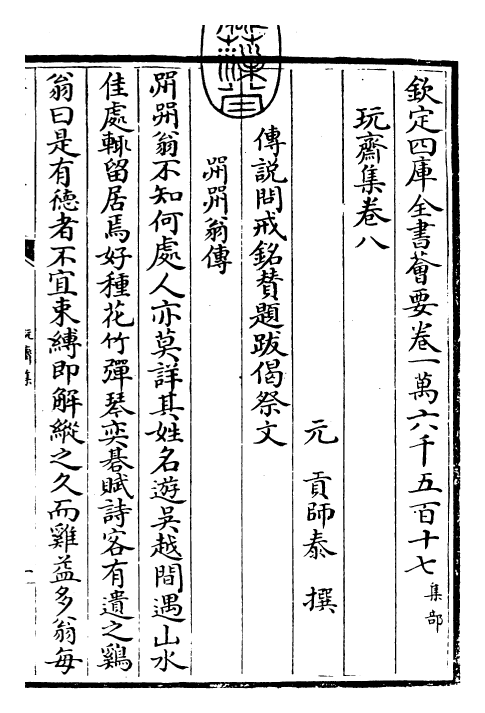 欽定四庫全書薈要卷一萬六千五百十七集部
玩齋集卷八
元 貢師泰 撰
傳說問戒銘賛題跋偈祭文
喌喌翁傳
喌喌翁不知何處人亦莫詳其姓名遊吳越間遇山水
佳處輒留居焉好種花竹彈琴奕碁賦詩客有遺之鷄
翁曰是有德者不宜束縛即解縱之久而雞益多翁每
玩齋集
一